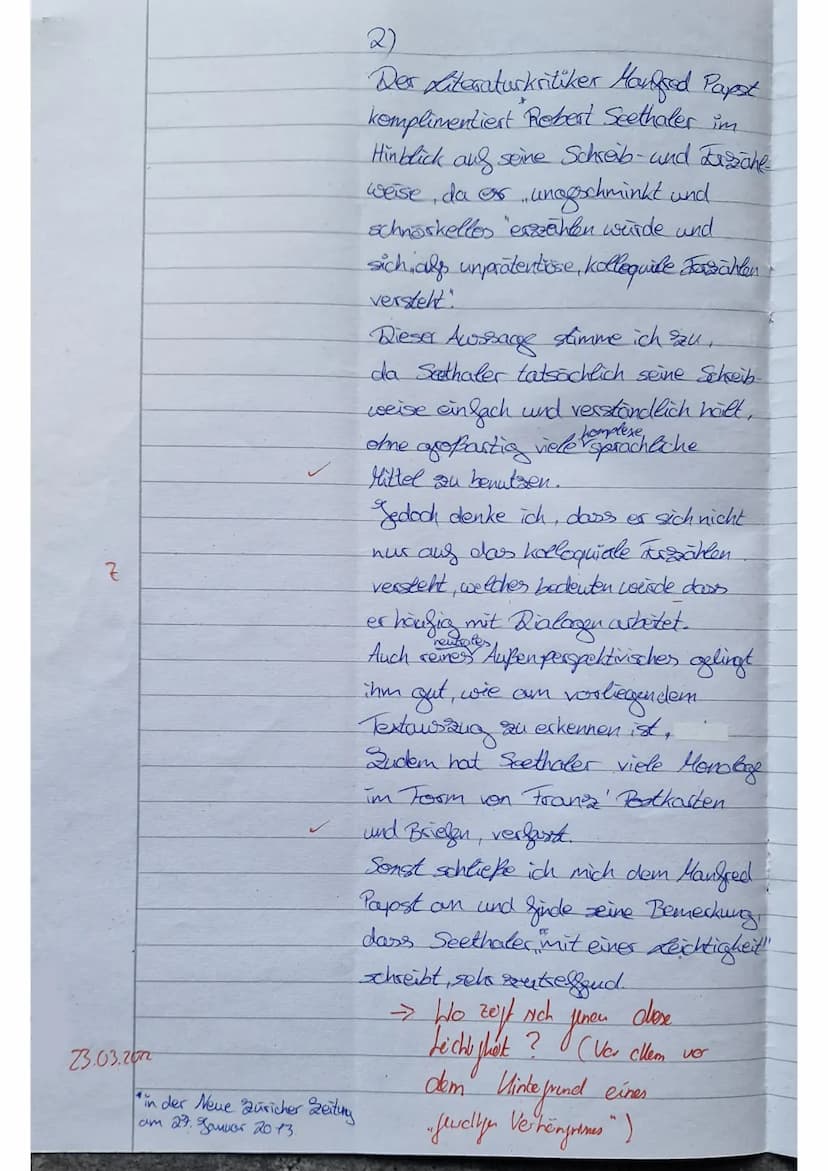 2)
Der Literaturkritiker Manfred Papst
komplimentiert * Robert Seethaler im
Hinblick auf seine Schreib- und Erzähl-
weise, da er „ungeschminkt und
schnörkellos" erzählen würde und
sich „aufs unprätentiöse, kolloquiale Erzählen
versteht".
Dieser Aussage stimme ich zu,
da Seethaler tatsächlich seine Schreib-
weise einfach und verständlich hält,
ohne großartig viele komplexe sprachliche
✓ Mittel zu benutzen.
Jedoch denke ich, dass er sich nicht
nur auf das kolloquiale Erzählen
Z versteht, welches bedeuten würde dass
er häufig mit Dialogen arbeitet.
Auch reines neutrales Außenperspektivisches gelingt
ihm gut, wie am vorliegendem
Textauszug zu erkennen ist,
Zudem hat Seethaler viele Monologe
im Form von Franz' Postkarten
✓ und Briefen, verfasst.
Sonst schließe ich mich dem Manfred
Papst an und finde seine Bemerkung,
dass Seethaler „mit einer Leichtigkeit"
schreibt, sehr zutreffend.
→ Wo zeigt sich genau diese
Leichtigkeit? (Vor allem vor
dem Hintergrund eines
„ Verhängnisses")
23.03.2022
*in der Neue Züricher Zeitung
am 27. Januar 2013